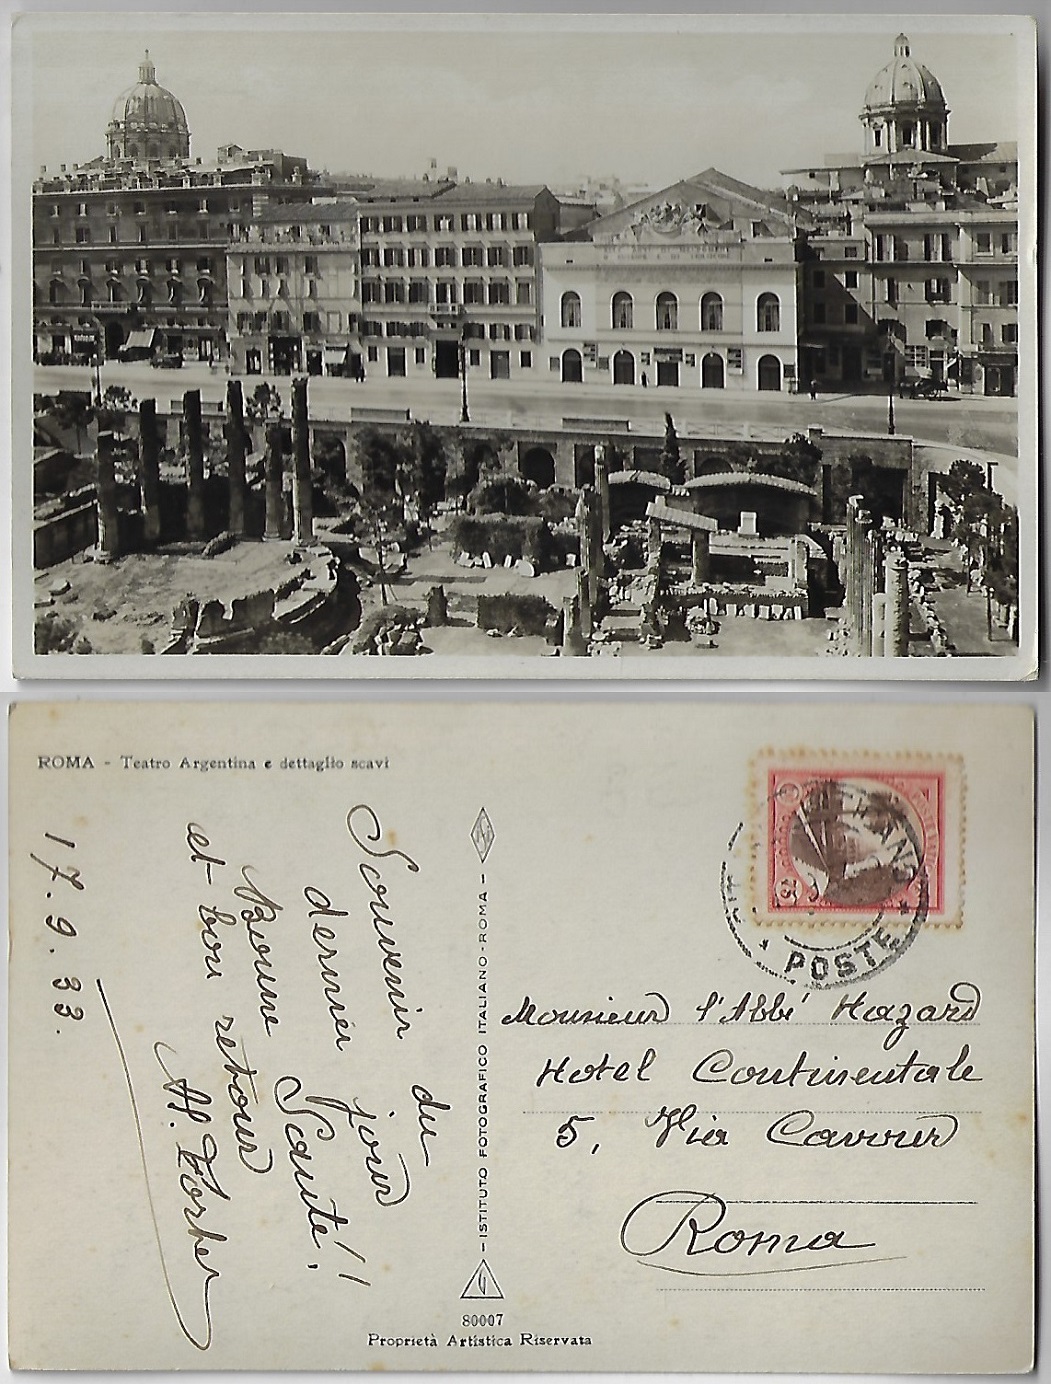 ROMA - Teatro Argentina e dettaglio scavi
Souvenir du
dernier jour
Bonne Santé!!
et bon retour
17.9.33.
ISTITUTO FOTOGRAFICO ITALIANO-ROMA
80007
Proprietà Artistica Riservata
POSTE
Monsieur l'Abbé Hazard
Hotel Continentale
5, Via Cavour
Roma